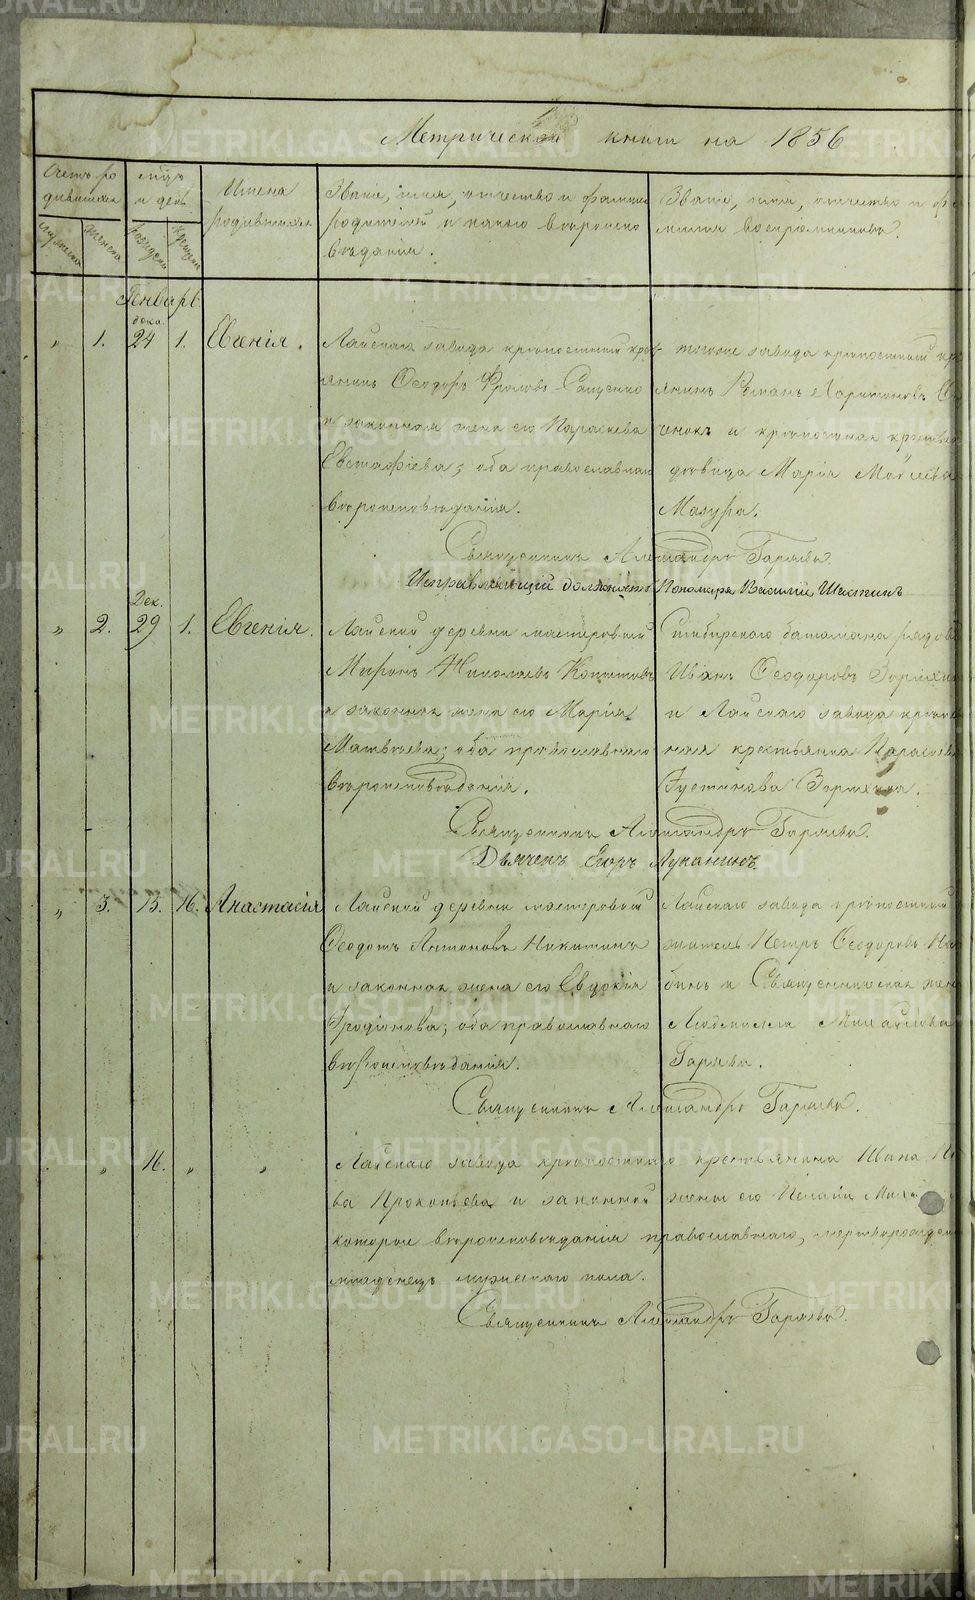 Метрической книги на 1856
Счетъ ро
дившихся
мужеска
женска
мцъ
и день
рожденія
крещен
Имена
родившихся.
Званіе, имя, отчество и фамилія
родителей и какого вѣроиспо
вѣданія.
Званіе, имя, отчество и фа
милія воспріемниковъ.
Генварь
" 1. дека. 24 1. Евгенія.
Лайскаго завода крѣпостный крес
янинъ Ѳеодоръ Фроловъ
и законная жена его Параскева
Евстафіева; оба православнаго
вѣроисповѣданія.
тогоже завода крѣпостный кре
янинъ Романъ Харитоновъ
и крѣпостная крестья
дѣвица Марія Моѵсіева
Мазура.
Священникъ Александръ Гаряевъ
Исправляющій должность Пономаря Василій
" 2. Дек. 29 1. Евгенія.
Лайской деревни мастеровый
Миронъ Николаевъ
и законная жена его Марія
Матвѣева; оба православнаго
вѣроисповѣданія.
Сибирскаго баталіона рядов
Иванъ Ѳеодоровъ
и Лайскаго завода крѣпос
ная крестьянка Параскева
Іустинова
Священникъ Александръ Гаряевъ.
Дьячекъ Егоръ Луканинъ.
" 3. 15. 16. Анастасія
Лайской деревни мастеровый
Ѳеодотъ Антоновъ Никитинъ
и законная жена его Евдокія
Родіонова; оба православнаго
вѣроисповѣданія.
Лайскаго завода крѣпостный
житель Петръ Ѳеодоровъ
бинъ и Священническая жена
Людмилла Михайлова
Гаряева.
Священникъ Александръ Гаряевъ.
" 16. " "
Лайскаго завода крѣпостнаго крестьянина
ва Прокопьева и законной жены его Пелагіи
которое вѣроисповѣданія православнаго, мертворожден
младенецъ мужескаго пола.
Священникъ Александръ Гаряевъ.
METRIKI.GASO-URAL.RU